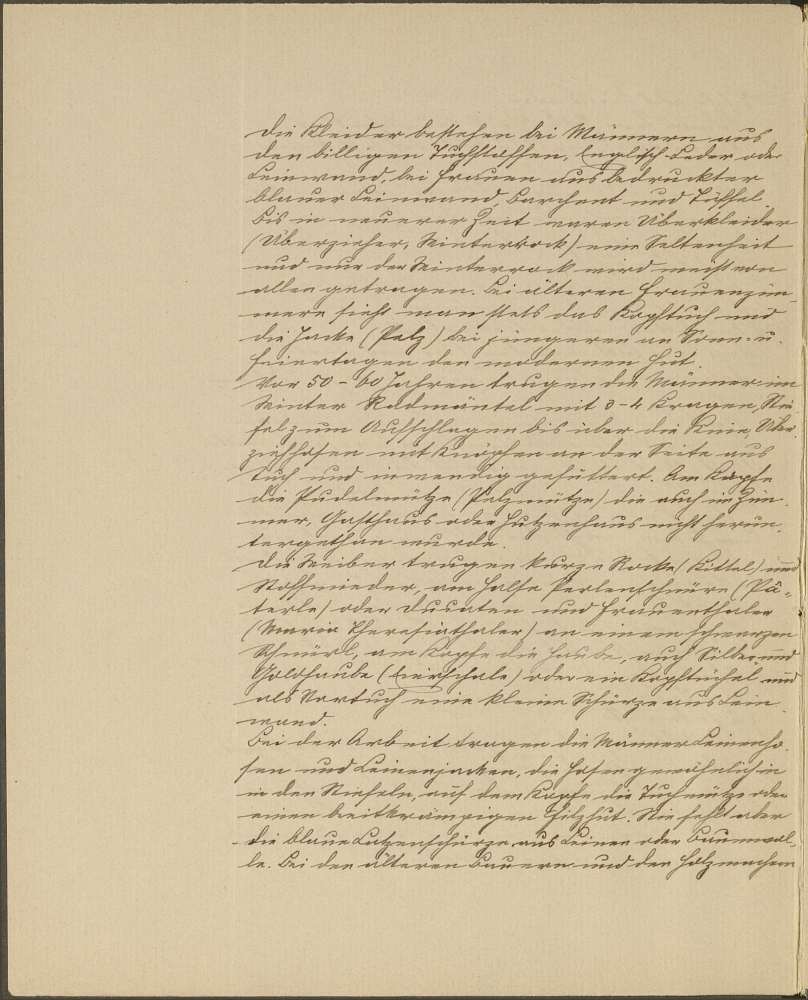 Die Kleider bestehen bei Männern aus
den billigen Tuchstoffen, Englisch-Leder oder
Leinwand, bei Frauen aus bedruckter
blauer Leinwand, Barchent und Töffel.
Bis in neuerer Zeit waren Überkleider
(Überzieher, Winterrock) eine Seltenheit
und nur der Winterrock wird meist von
allen getragen. Bei älteren Frauenzim-
mern sieht man stets das Kopftuch und
die Jacke (Pelz) bei jüngeren an Sonn- u.
Feiertagen den modernen Hut.
Vor 50 – 60 Jahren trugen die Männer im
Winter Radmäntel mit 3-4 Kragen, Stie-
fel zum Aufschlagen bis über die Knie, Über-
ziehhosen mit Knöpfen an der Seite aus
Tuch und inwendig gefüttert. Am Kopfe
die Pudelmütze (Pelzmütze) die auch im Zim-
mer, Gasthaus oder Hutzenhaus nicht herun-
tergethan wurde.
Die Weiber trugen kurze Röcke (Kittel) und
Stoffmieder, am Halse Perlenschnüre (Pä-
terle) oder Ducaten und Frauenthaler
(Maria Theresiathaler) an einem schwarzen
Schnürl, am Kopfe die Haube, auch Silber und
Goldhaube (Eierschale) oder ein Kopftüchel und
als Vortuch eine kleine Schürze aus Lein-
wand.
Bei der Arbeit tragen die Männer Leinenho-
sen und Leinenjacken, die Hosen gewöhnlich in
in den Stiefeln, auf dem Kopfe die Tuchmütze oder
einen breitkrämpigen Filzhut. Nie fehlt aber
die blaue Latzenschürze aus Leinen oder Baumwol-
le. Bei den älteren Bauern und den Holzmachern